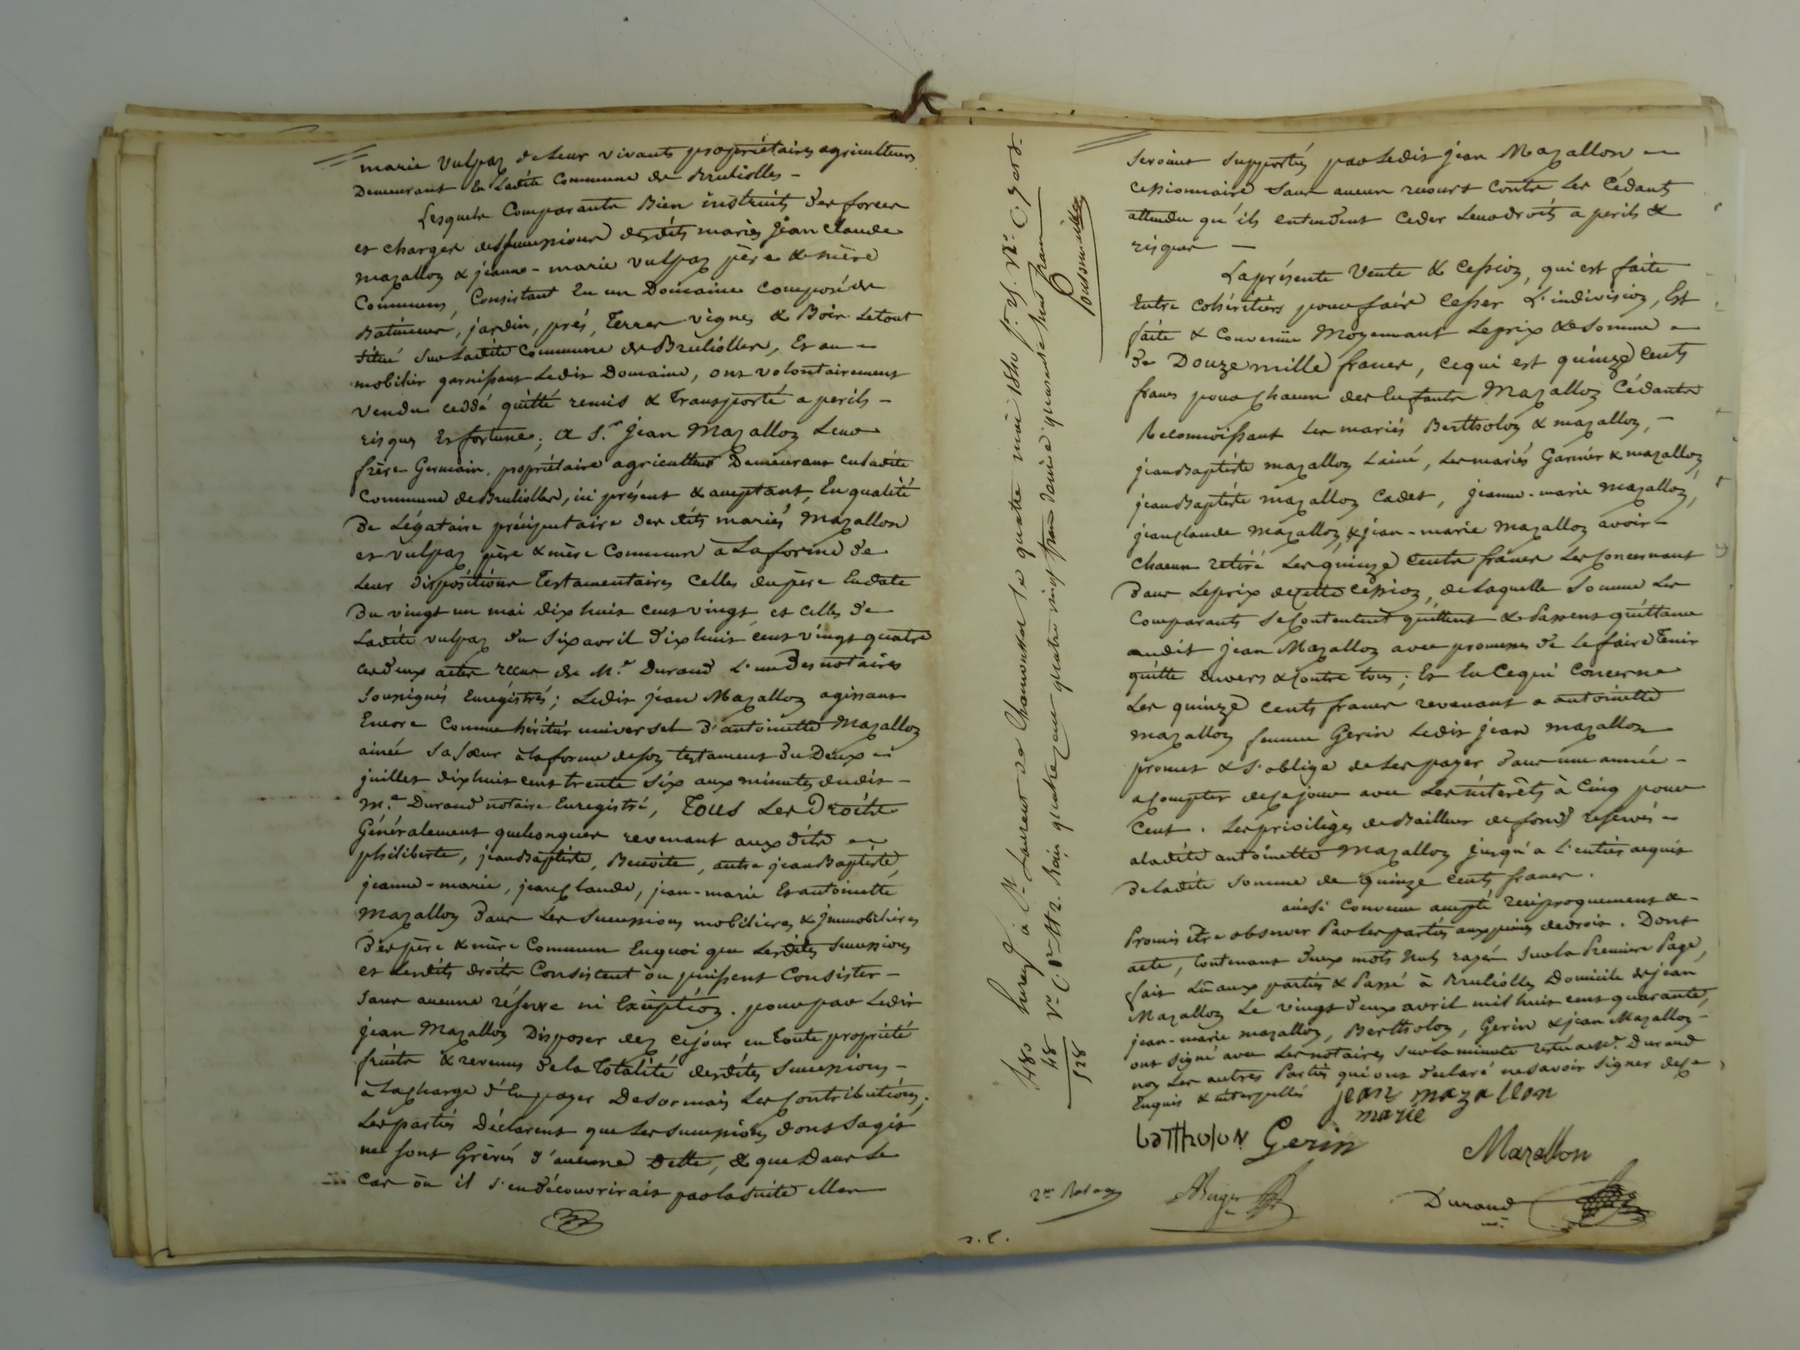 marie Vulpaz de leur vivants propriétaires agriculteurs
Demeurant En Ladite Commune de Bruliolles -
Lesquels Comparants Bien instruits des forces
et charges des successions desdits mariés jean claude
mazallon & jeanne-marie vulpaz père & mère
Communs, Consistant En un Domaine composé de
Batiments, jardin, prés, Terres vignes & Bois Le tout
situé sur Ladite Commune de Bruliolles, Et au -
mobilier garnissant Ledit Domaine, ont volontairement
vendu ceddé quitté remis & Transporté a perils -
risques Et fortune; a S.r jean Mazallon Leur
frère Germain, propriétaire agriculteur Demeurant en Ladite
Commune de Bruliolles, ici présent & acceptant, En qualité
De Légataire précipuitaire des dits mariés Mazallon
et vulpaz père & mère Communs à La forme de
Leurs dispositions Testamentaires Celles du père En date
Du vingt un mai dix huit cent vingt, et celles de
Ladite vulpaz du six avril dix huit cent vingt quatre
ces deux actes reçus de M.e Durand L'un Des notaires
soussignés Enregistrés; Ledit jean Mazallon agissant
Encore Comme héritier universel d'antoinette Mazallon
ainée sa sœur à la forme de son testament Du Deux -
juillet dix huit cent trente six aux minutes dudit -
M.e Durand notaire Enregistré, Tous Les Droits
Généralement quelconques revenant aux dits -
philiberte, jean Baptiste, Benoite, autre jean Baptiste,
jeanne-marie, jean claude, jean-marie Et antoinette
Mazallon Dans Les successions mobiliaires & jmmobiliaires
Des père & mère Communs En quoi que Lesdites successions
et Lesdits droits Consistent ou puissent Consister -
sans aucune réserve ni Exception. pour par Ledit
jean Mazallon Disposer dez ce jour en toute propriété
fruits & revenus de la Totalité desdites successions -
à La charge d'En payer Desormais Les Contributions;
Les parties Déclarent que Les successions dont s'agit
ne sont Grévés d'aucune Dette, & que Dans Le
Cas où il s'en découvrirait par la suite elles
seroient supportés par Ledit jean Mazallon -
cessionnaire sans aucun recours contre Les Cédants
attendu qu'ils entendent Ceder Leurs droits a perils &
risques -
La présente Vente & Cession, qui est faite
Entre Cohéritiers pour fair cesser L'indivision, Est
faite & Convenüe Moyennant Le prix & Somme -
de Douze mille francs, ce qui est quinze cents
francs pour Chacun des Enfants Mazallon Cédants
Reconnoissant Les mariés Bertholon & mazallon, -
jean Baptiste mazallon L'ainé, Les mariés Garnier & mazallon,
jean Baptiste mazallon Cadet, jeanne-marie Mazallon,
jean Claude Mazallon, & jean-marie Mazallon avoir -
chacun retiré Les quinze cents francs Les Concernant
Dans Le prix de cette cession, de Laquelle Somme Les
Comparants se Contentent quittent & Passent quittance
audit jean Mazallon avec promesse de Le faire Tenir
quitte Envers & Contre tous; Et En Ce qui Concerne
Les quinze cents francs revenant a antoinette
Mazallon femme Gerin Ledit jean mazallon
promet & s'oblige de Les payer dans une année -
a compter de ce jour avec Les intérêts à Cinq pour
Cent. Les privilèges de Bailleur de fond reservés -
a ladite antoinette Mazallon jusqu'a L'entier acquit
De Ladite Somme de quinze cents francs.
ainsi convenu accepté réciproquement & -
Promis être observer Par Les parties aux peines de droit. Dont
acte, Contenant deux mots nuls rayés sur La Première Page,
fait Lû aux parties & Passé à Bruliolles Domicile de jean
Mazallon Le vingt deux avril mil huit cent quarante,
jean-marie mazallon, Bertholon, Gerin & jean Mazallon -
ont signé avec Les notaires sur La minute restée a M.e Durand
non Les autres Parties qui ont déclaré ne savoir signer de ce
Enquis & interpellés
jean mazallon
marie
bartholon Gerin
Mazallon
Durand
2.me
Enreg.é à St Laurent de Chamousset le quatre mai 1840
480
48
528